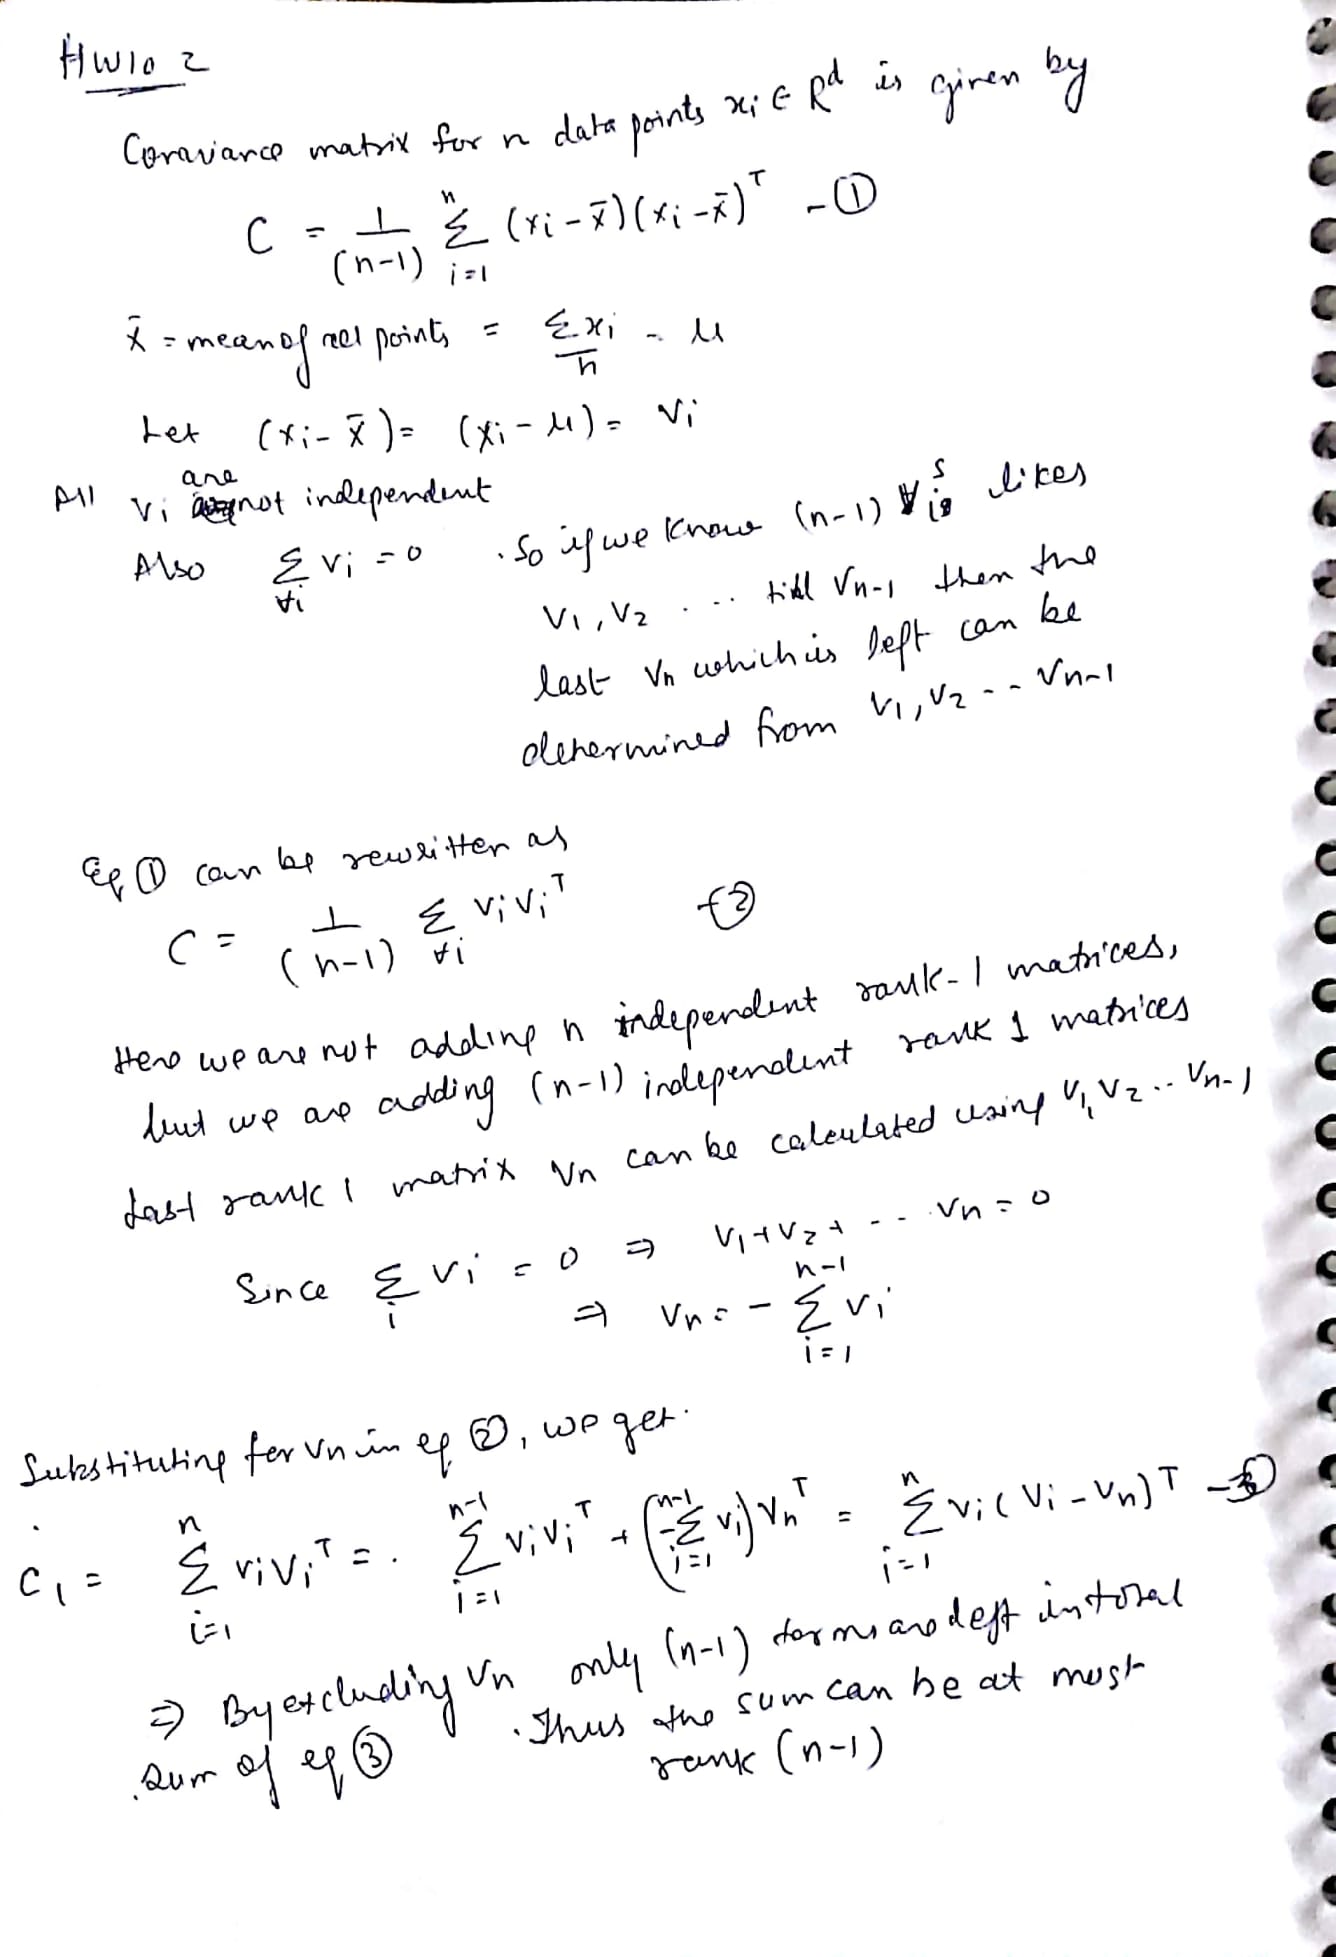 HW10 2
Covariance matrix for n data points xi ∈ R^d is given by
C = 1/(n-1) Σ_{i=1}^{n} (xi - x̄)(xi - x̄)^T - ①
x̄ = mean of all points = Σxi/n = μ
Let (xi - x̄) = (xi - μ) = vi
All vi are not independent
Also Σ_{∀i} vi = 0 . So if we know (n-1) vis likes
v1, v2 .... till vn-1 then the
last vn which is left can be
determined from v1, v2 -- vn-1
Eq ① can be rewritten as
C = 1/(n-1) Σ_{∀i} vi vi^T - ②
Here we are not adding n independent rank-1 matrices,
but we are adding (n-1) independent rank 1 matrices
Last rank 1 matrix vn can be calculated using v1, v2 .. vn-1
Since Σ_i vi = 0 ⇒ v1 + v2 + -- . vn = 0
⇒ vn = - Σ_{i=1}^{n-1} vi
Substituting for vn in eq ②, we get.
C1 = Σ_{i=1}^{n} vi vi^T = . Σ_{i=1}^{n-1} vi vi^T + (-Σ_{i=1}^{n-1} vi) vn^T = Σ_{i=1}^{n} vi (vi - vn)^T - ③
⇒ By excluding vn only (n-1) terms are left in total
sum of eq ③ . Thus the sum can be at most
rank (n-1)